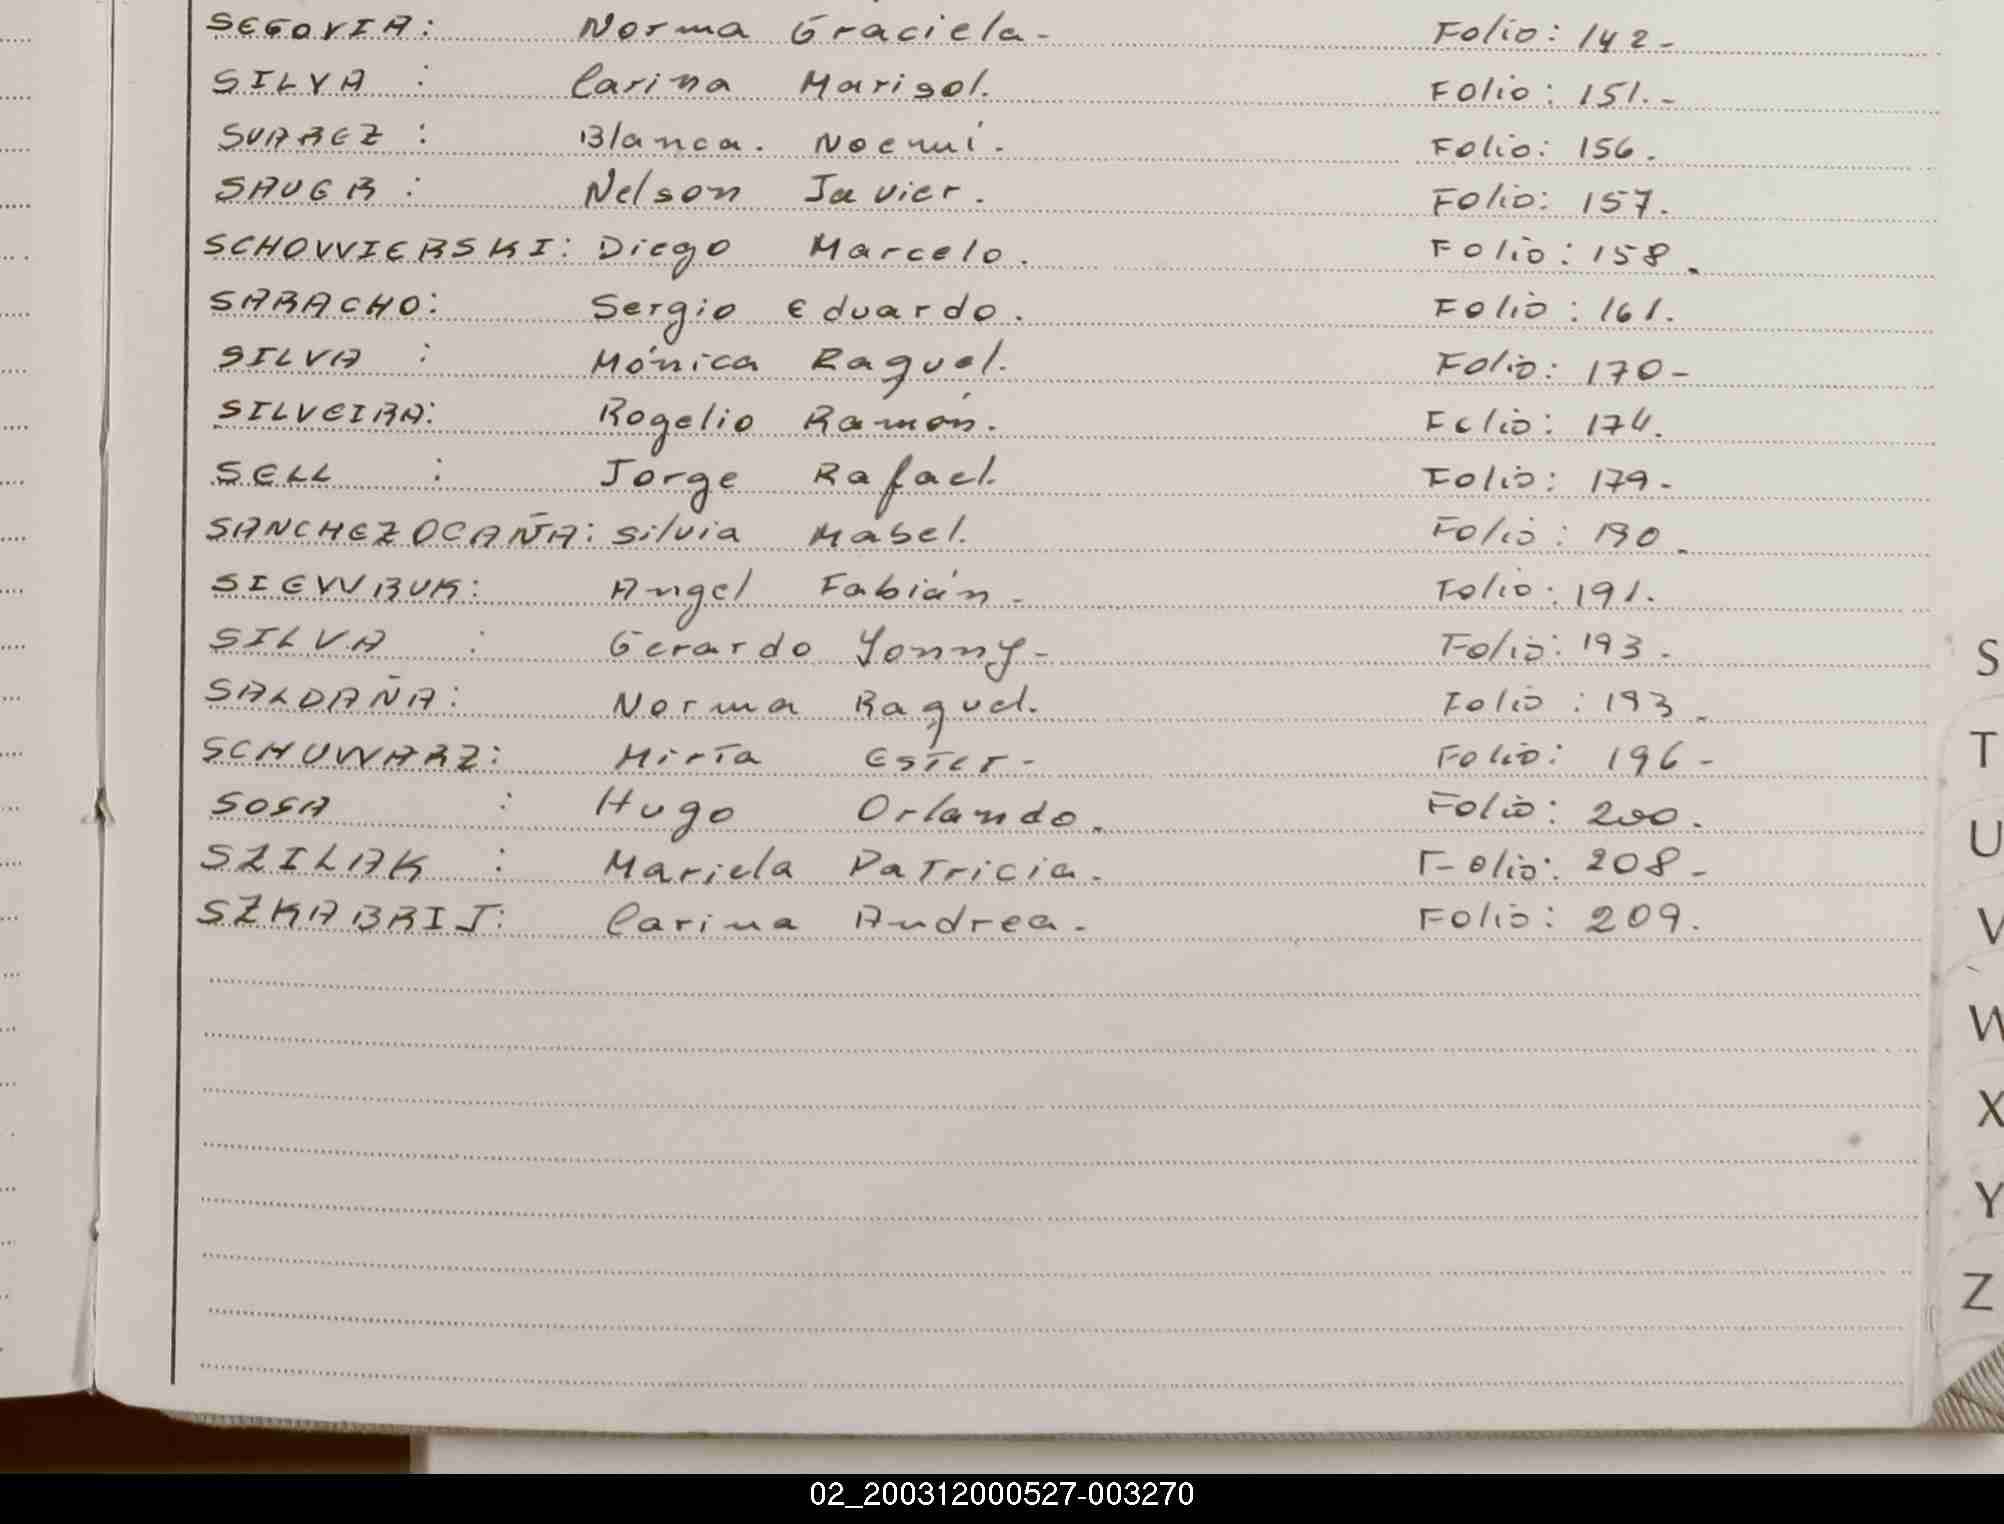 SEGOVIA: Norma Graciela- Folio: 142-
SILVA : Carina Marisol. Folio: 151.-
SUAREZ : Blanca. Noemí. Folio: 156.
SAUER : Nelson Javier. Folio: 157.
SCHOWIERSKI: Diego Marcelo. Folio: 158.
SARACHO: Sergio Eduardo. Folio: 161.
SILVA : Mónica Raquel. Folio: 170-
SILVEIRA: Rogelio Ramón. Folio: 174.
SELL : Jorge Rafael. Folio: 179-
SANCHEZ OCAÑA: Silvia Mabel. Folio: 190.
SIEWRUK: Angel Fabián- Folio: 191.
SILVA : Gerardo Yonny- Folio: 193.
SALDAÑA: Norma Raquel. Folio: 193.
SCHUWARZ: Mirta Ester- Folio: 196-
SOSA : Hugo Orlando. Folio: 200.
SZILAK : Mariela Patricia. Folio: 208-
SZKABRIJ: Carina Andrea. Folio: 209.
S
T
U
V
W
X
Y
Z
02_200312000527-003270